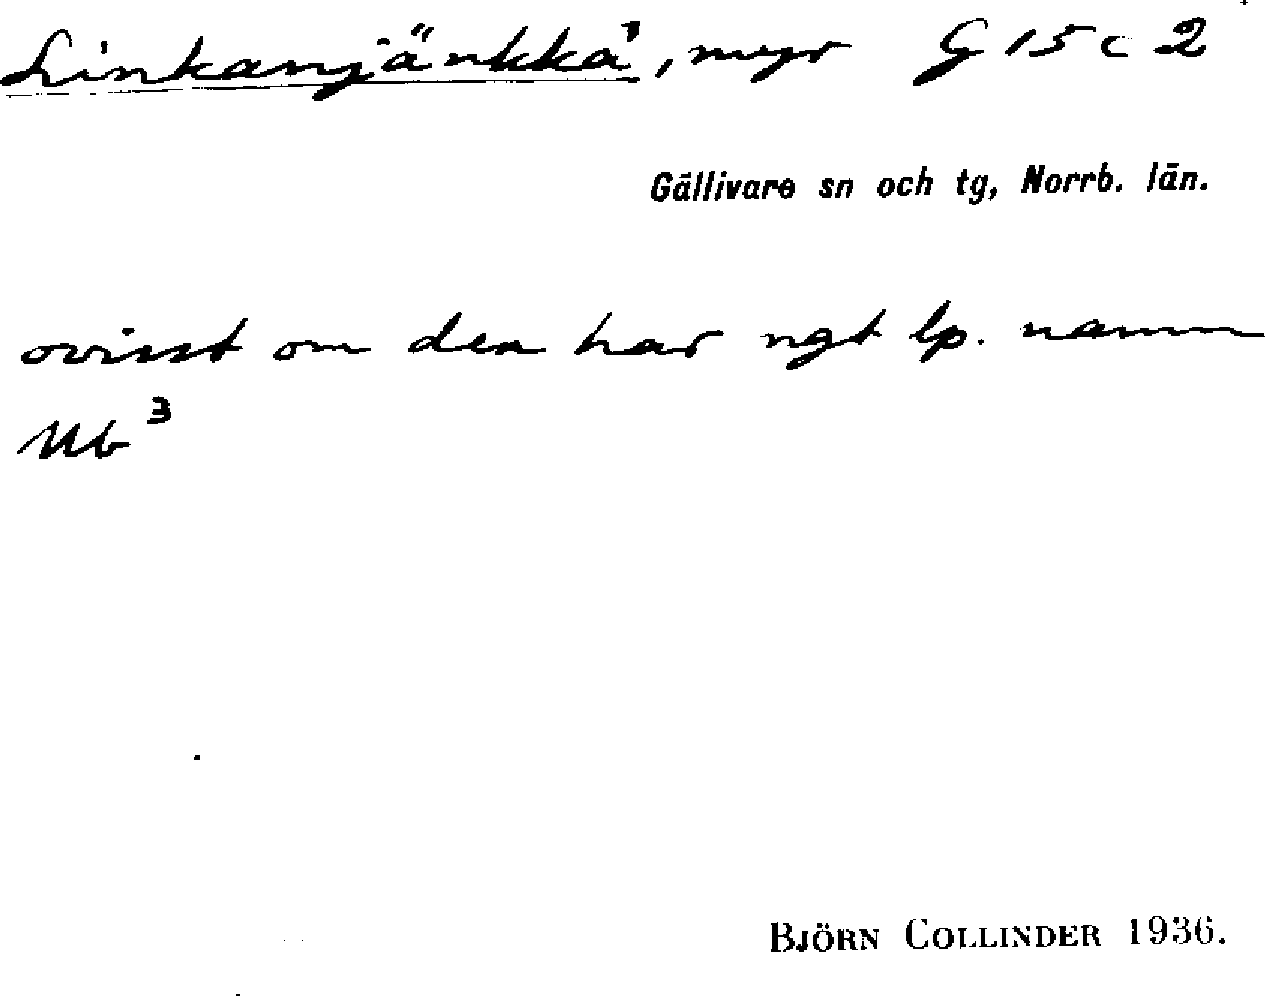 Linkanjänkkä, myr G 15 c 2
Gällivare sn och tg, Norrb. län.
ovisst om den har ngt lp. namn
Ub³
BJÖRN COLLINDER 1936.